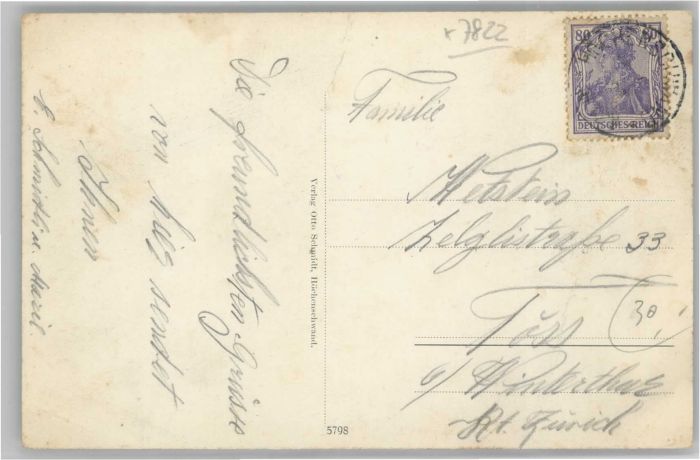 Die freundlichsten Grüsse
von hier sendet
Ihnen
E. Schmidli u. Marie.
Verlag Otto Schmidt, Höchenschwand.
5798
x 7822
80 80
DEUTSCHES REICH
Familie
Wetstein
Zelglistraße 33
Töss
b/ Winterthur
Kt. Zürich
30,